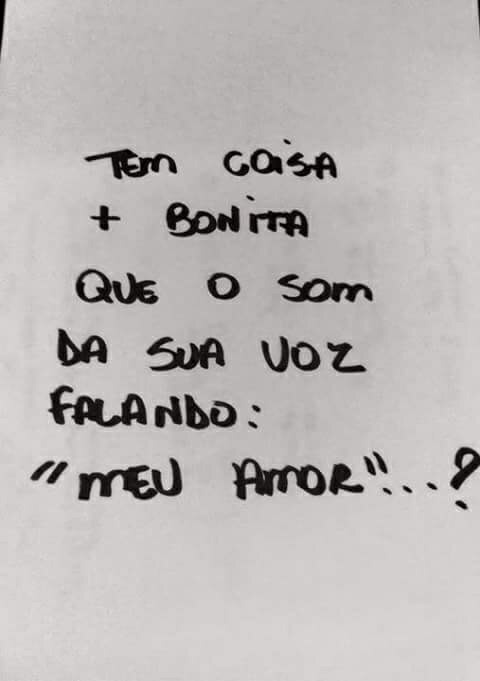 TEM COISA
+ BONITA
QUE O SOM
DA SUA VOZ
FALANDO:
"MEU AMOR"...?